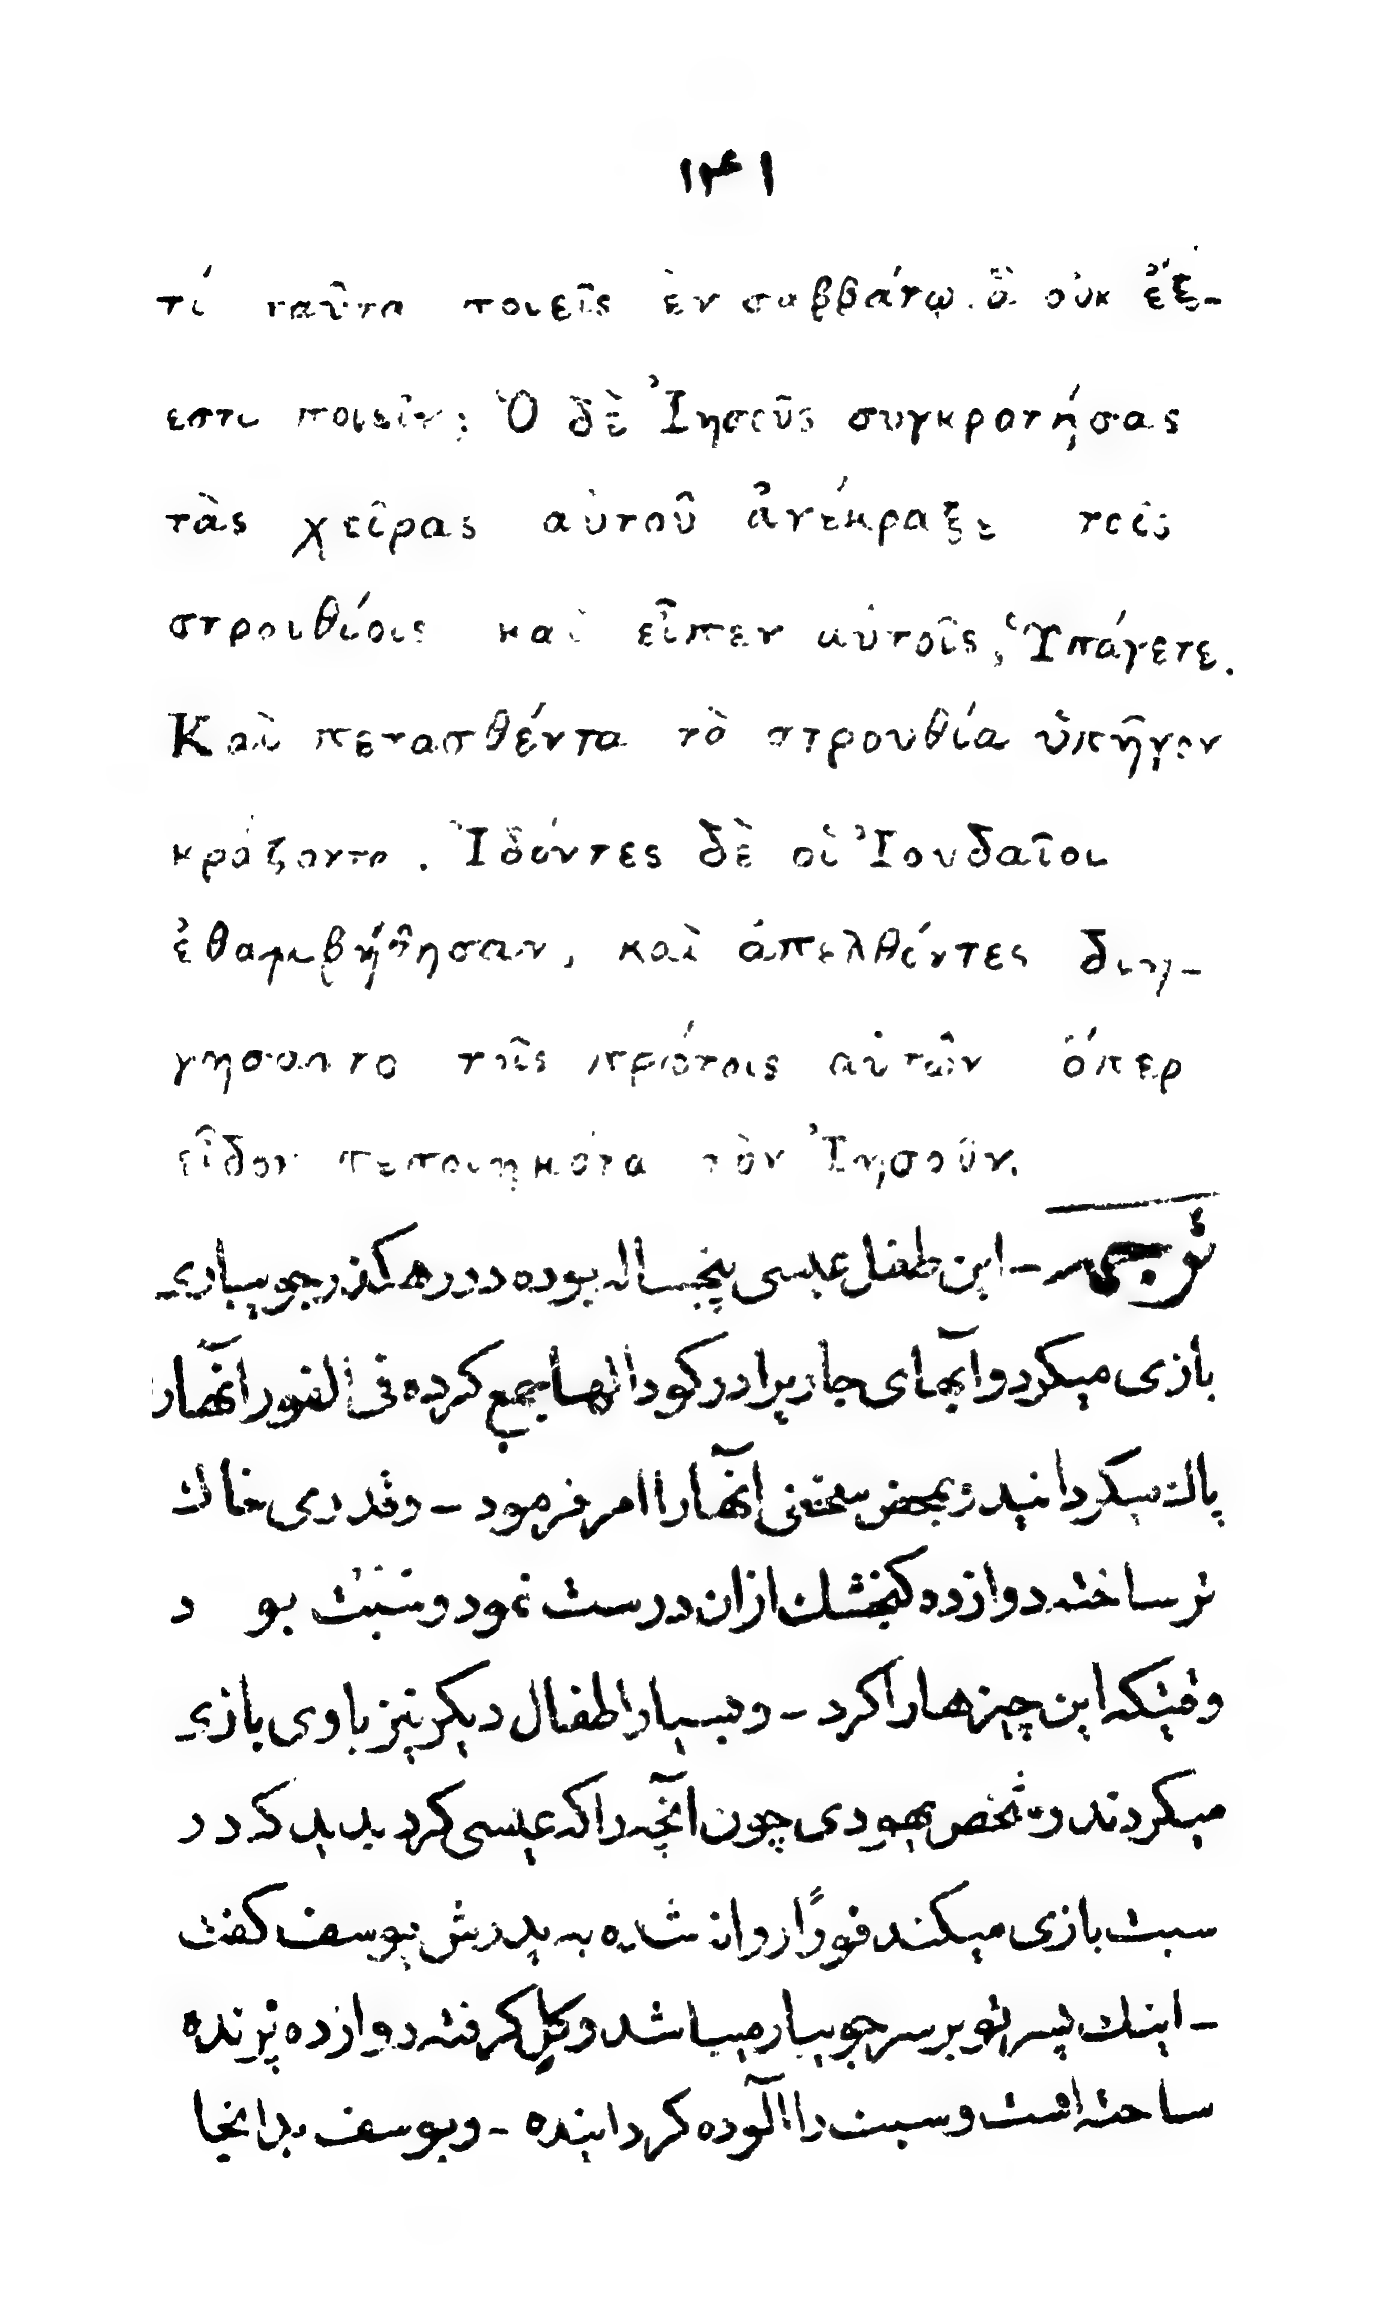 ۱۴۱
τί ταῦτα ποιεῖς ἐν σαββάτῳ, ὃ οὐκ ἔξ-
εστι ποιεῖν; Ὁ δὲ Ἰησοῦς συγκροτήσας
τὰς χεῖρας αὐτοῦ ἀνέκραξε τοῖς
στρουθίοις καὶ εἶπεν αὐτοῖς, Ὑπάγετε.
Καὶ πετασθέντα τὸ στρουθία ὑπῆγον
κράζοντα. Ἰδόντες δὲ οἱ Ἰουδαῖοι
ἐθαμβήθησαν, καὶ ἀπελθέντες διη-
γησαντο τοῖς πρώτοις αὐτῶν ὅπερ
εἶδον πεποιηκότα τὸν Ἰησοῦν.
ترجمه - این طفل عیسی پنجساله بوده در رهکذر جویباری
بازی میکرد و آبهای جاریرا در کودالها جمع کرده فی الفور آنها را
پاك میکردانید و بمحض سخنی آنها را امر فرمود - و قدری خاك
تر ساخته دوازده کنجشك ازان درست نمود و سبت بو د
وقتیکه این چیزها را کرد - و بسیار اطفال دیکر نیز با وی بازی
میکردند و شخص یهودی چون آنچه را که عیسی کرد بدید که د ر
سبت بازی میکند فورًا روانه شده به پدرش یوسف کفت
- اینك پسر تو بر سر جویبار میباشد و کِل کرفته دوازده پرنده
ساخته است و سبت را آلوده کردانیده - و یوسف بدانجا